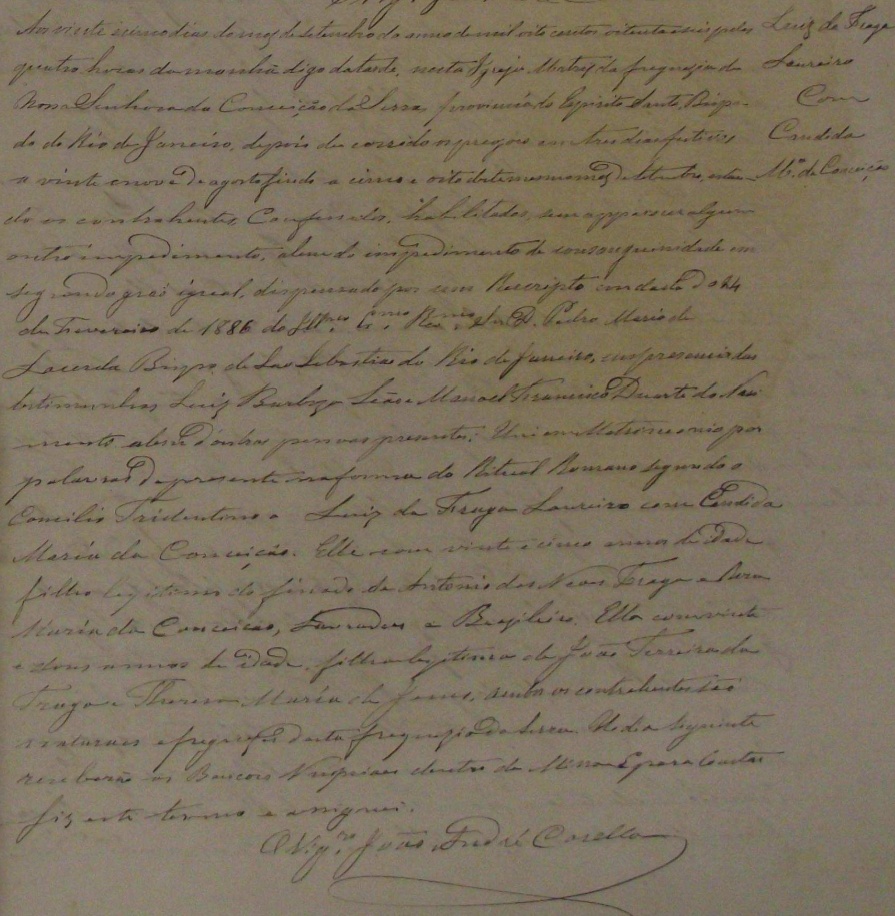 Aos vinte e cinco dias do mez de setembro do anno de mil oito centos oitenta e seis pelas
quatro horas da manhã digo da tarde, nesta Igreja Matriz da freguezia de
Nossa Senhora da Conceição da Serra, provincia do Espirito Santo, Bispa-
do do Rio de Janeiro, depois de corridos os pregões em tres dias festivos
a vinte e nove de agosto findo a cinco e oito deste mesmo mez de setembro, estan-
do os contrahentes, Confessados, habilitados, sem apparecer algum
outro impedimento, alem do impedimento de consanguinidade em
segundo gráo igual, dispensado por um Rescripto com data do 24
de Fevereiro de 1886 do Illmo. Exmo. Revmo. Snr. D. Pedro Maria de
Lacerda Bispo de São Sebastião do Rio de Janeiro, em presença das
testimunhas Luiz Barboza Leão e Manoel Francisco Duarte do Nasci
mento alem d'outras pessoas presentes; Uni em Matrimonio por
palavras de presente na forma do Ritual Romano segundo o
Concilio Tridentino a Luiz da Fraga Loureiro com Candida
Maria da Conceição. Elle com vinte e cinco annos de idade
filho legitimo do finado Antonio das Neves Fraga e
Maria da Conceição, Lavrador e Brazileiro. Ella com vinte
e dous annos de idade, filha legitima de João Ferreira da
Fraga e Thereza Maria de Jesus, ambos os contrahentes são
naturaes e freguezes desta freguezia da Serra. No dia seguinte
receberão as Bençoes Nupciaes dentro da Missa E para Constar
fiz este termo e assignei.
O Vigro. João André Casella
Luiz da Fraga
Loureiro
Com
Candida
Ma. da Conceição